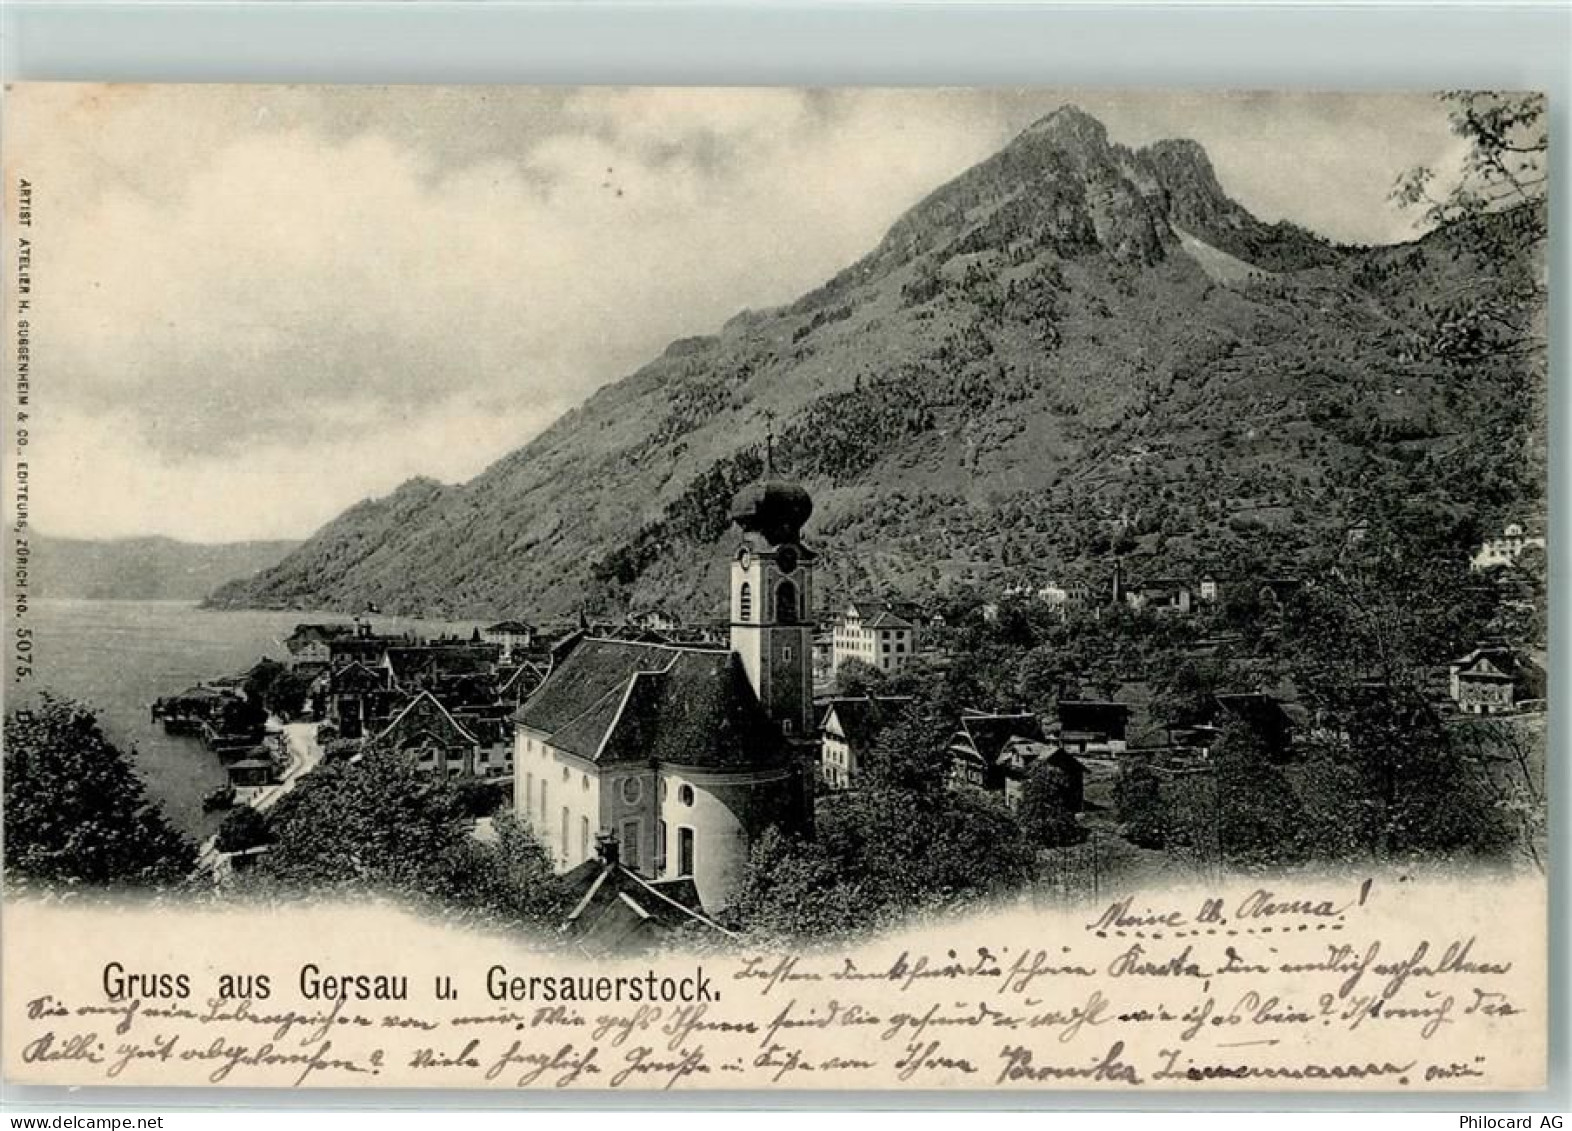 ARTIST. ATELIER H. GUGGENHEIM & CO., EDITEURS, ZÜRICH NO. 5075.
Meine lb. Anna!
Gruss aus Gersau u. Gersauerstock.
Besten Dank für die schöne Karte, die endlich erhalten
Sie auch ein Lebenzeichen von mir. Wie gehs Ihnen sind Sie gesund u. wohl wie ich es bin? Ist auch die
Kilbi gut abgelaufen? Viele herzliche Grüße u. Küße von Ihrer Veronika Zimmermann.
Philocard AG